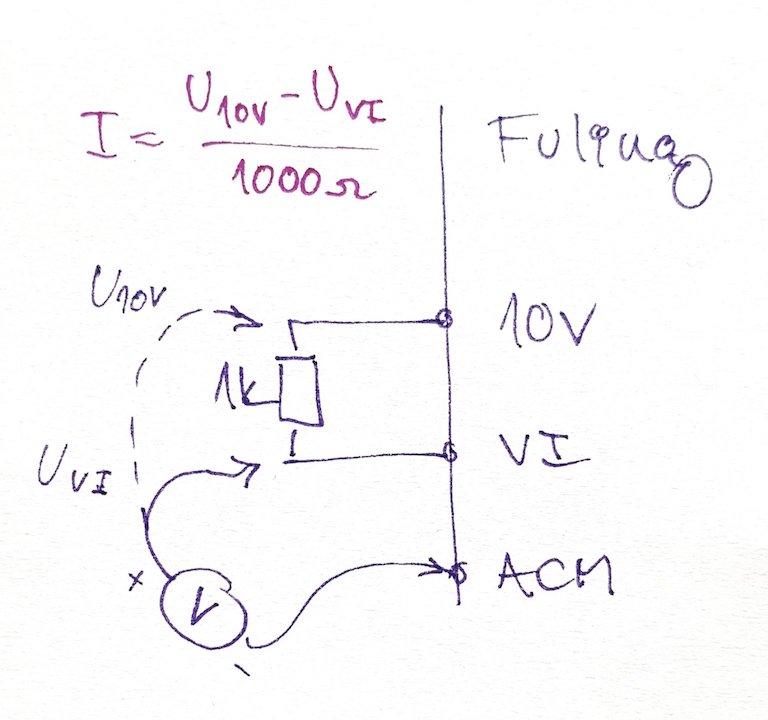 I = U10V - UVI
1000Ω
Fulling
U10V
10V
1k
VI
UVI
+
V
ACM
-